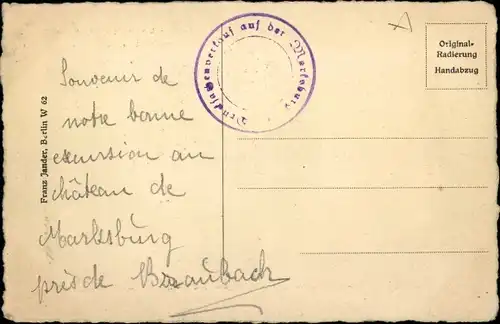 Souvenir de
notre bonne
exursion au
château de
Marksburg
près de Braubach
Franz Jander, Berlin W 62
Drucksachenverkauf auf der Marksburg
Original-
Radierung
Handabzug